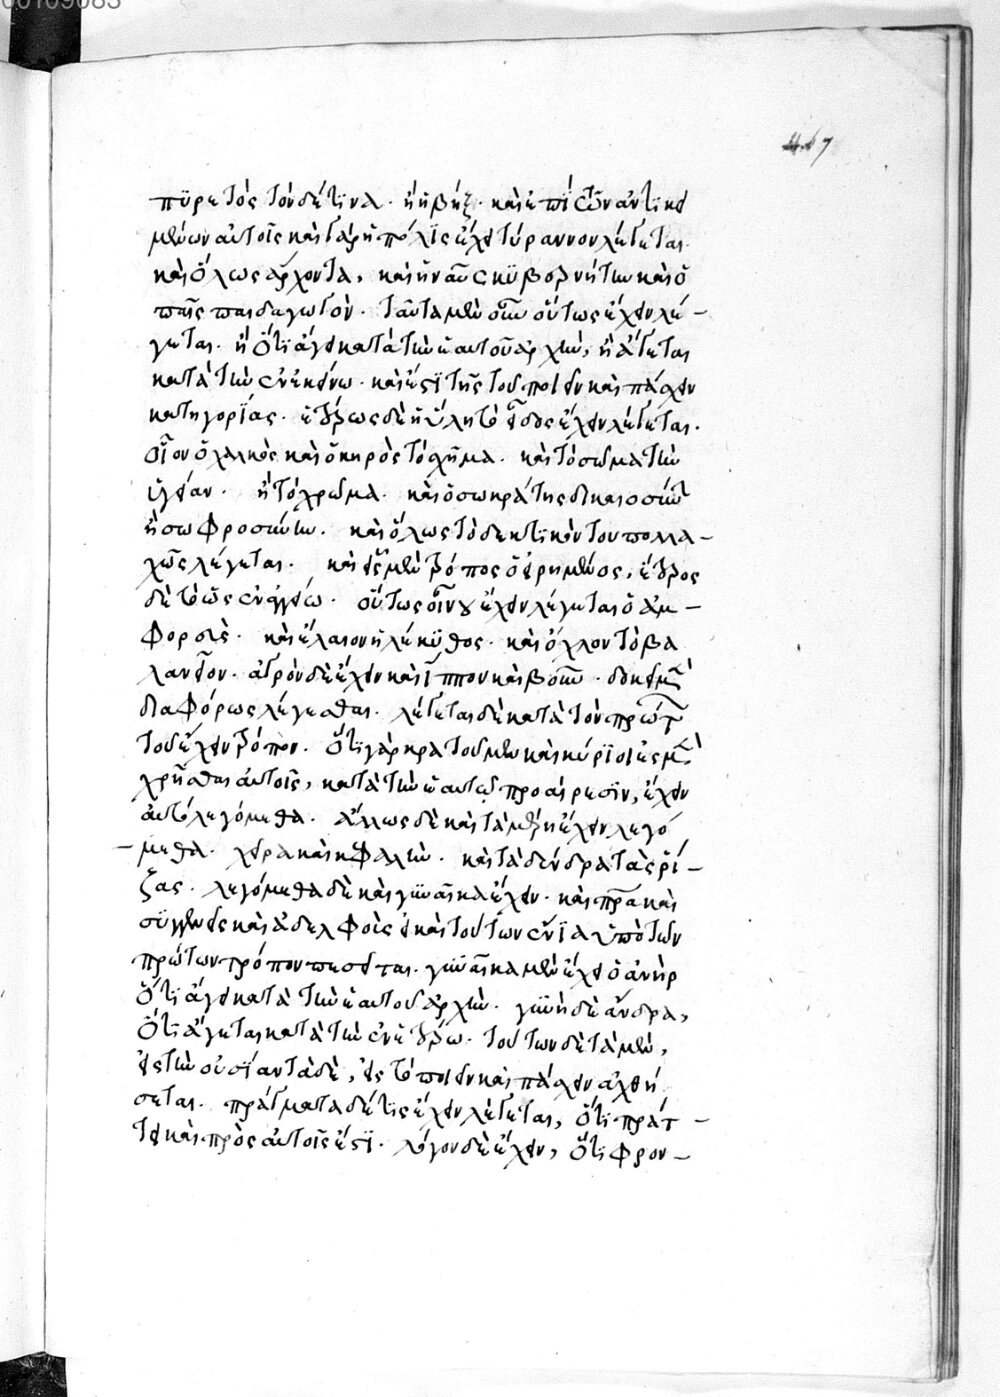 00109083
πυρετὸς τόνδέ τινα. ἢ ἡ βήξ. καὶ ἐπὶ τῶν ἀντικει
μένων αὐτοῖς καὶ γὰρ ἡ πόλις ἔχει τύραννον λέγεται.
καὶ ὅλως ἄρχοντα, καὶ ἡ ναῦς κυβερνήτην καὶ ὁ
παῖς παιδαγωγόν. ταῦτα μὲν οὖν οὕτως ἔχειν λέ-
γεται. ἢ ὅτι ἄγει κατὰ τὴν ἑαυτοῦ ἀρχὴν, ἢ ἄγεται
κατὰ τὴν ἐν ἐκείνω. καὶ ἔστι τῆς τοῦ ποιεῖν καὶ πάσχειν
κατηγορίας. ἑτέρως δὲ ἡ ὕλη τὸ εἶδος ἔχειν λέγεται.
οἷον ὁ χαλκὸς καὶ ὁ κηρὸς τὸ σχῆμα. καὶ τὸ σῶμα τὴν
ὑγείαν. ἢ τὸ χρῶμα. καὶ ὁ σωκράτης δικαιοσύνην
ἢ σωφροσύνην. καὶ ὅλως τὸ δεκτικὸν του πολλα-
χῶς λέγεται. καὶ εἷς μὲν τρόπος ὁ εἰρημένος, ἕτερος
δὲ τὸ ὡς ἐν ἀγγείω. οὕτως οἶνον ἔχειν λέγεται ὁ ἀμ-
φορεὺς. καὶ ἔλαιον ἡ λήκυθος. καὶ ὄχλον τὸ βα
λανεῖον. ἀγρὸν δὲ ἔχειν καὶ ἵππον καὶ βοῦν. δοκεῖ μὲν
διαφόρως λέγεσθαι. λέγεται δὲ κατὰ τὸν πρῶτον
τοῦ ἔχειν τρόπον. ὅτι γὰρ κρατοῦμεν καὶ κύριοι ἐσμὲν
χρῆσθαι αὐτοῖς, κατὰ τὴν ἑαυτῶν προαίρεσιν, ἔχειν
αὐτὸ λεγόμεθα. ἄλλως δὲ καὶ τὰ μέρη ἔχειν λεγό
-μεθα. χεῖρα καὶ κεφαλὴν. καὶ τὰ δένδρα τὰς ῥί-
ζας. λεγόμεθα δὲ καὶ γυναῖκα ἔχειν. καὶ πατέρα καὶ
συγγενεῖς καὶ ἀδελφοὺς εἰ καὶ τούτων ἔνια ὑπὸ τὸν
πρῶτον τρόπον πεσεῖται. γυναῖκα μὲν ἔχει ὁ ἀνὴρ
ὅτι ἄγει κατὰ τὴν ἑαυτοῦ ἀρχὴν. γυνὴ δὲ ἄνδρα,
ὅτι ἄγεται κατὰ τὴν ἐν ἑτέρω. τούτων δὲ τὰ μὲν,
εἰς τὴν οὐσίαν τὰ δὲ, εἰς τὸ ποιεῖν καὶ πάσχειν ἀχθή
σεται. πράγματα δέ τις ἔχειν λέγεται, ὅτι πράτ-
τει καὶ πρὸς αὐτοῖς ἐστι. λόγον δὲ ἔχειν, ὅτι φρον-